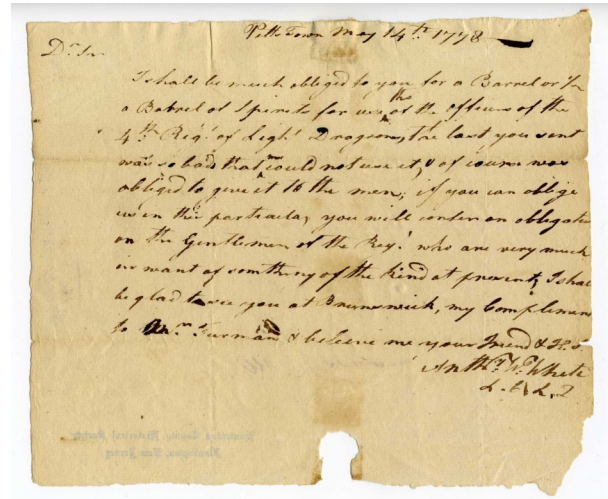 Pitts Town May 14th. 1778
Dr. Sir
I shall be much obliged to you for a Barrel or 1/2
a Babrel of Spirits for use of the officers of the
th
4th Regt. of Light Dragoons, the last you sent
was so bad that we could not use it, & of course was
obliged to give it to the men; if you can oblige
us in this particular, you will confer an obligation
on the Gentlemen of the Regt. who are very much
in want of somthing of the kind at present, I shall
be glad to see you at Brunswick, my Compliments
to Furman & believe me your Friend &
Anthy. W. White
Hunterdon County Historical Society
Flemington, New Jersey